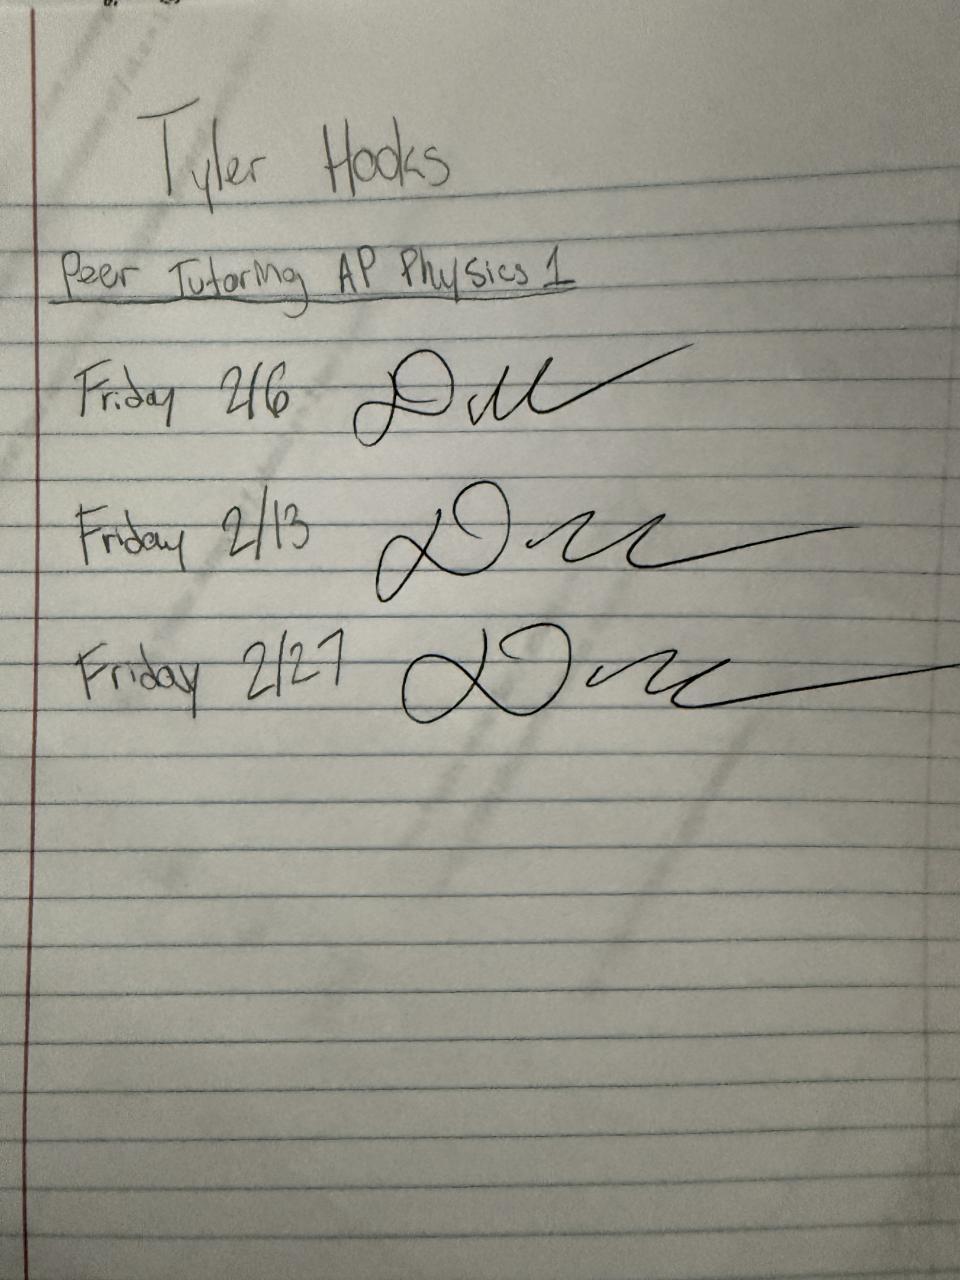 Tyler Hooks
Peer Tutoring AP Physics 1
Friday 2/6
Friday 2/13
Friday 2/27